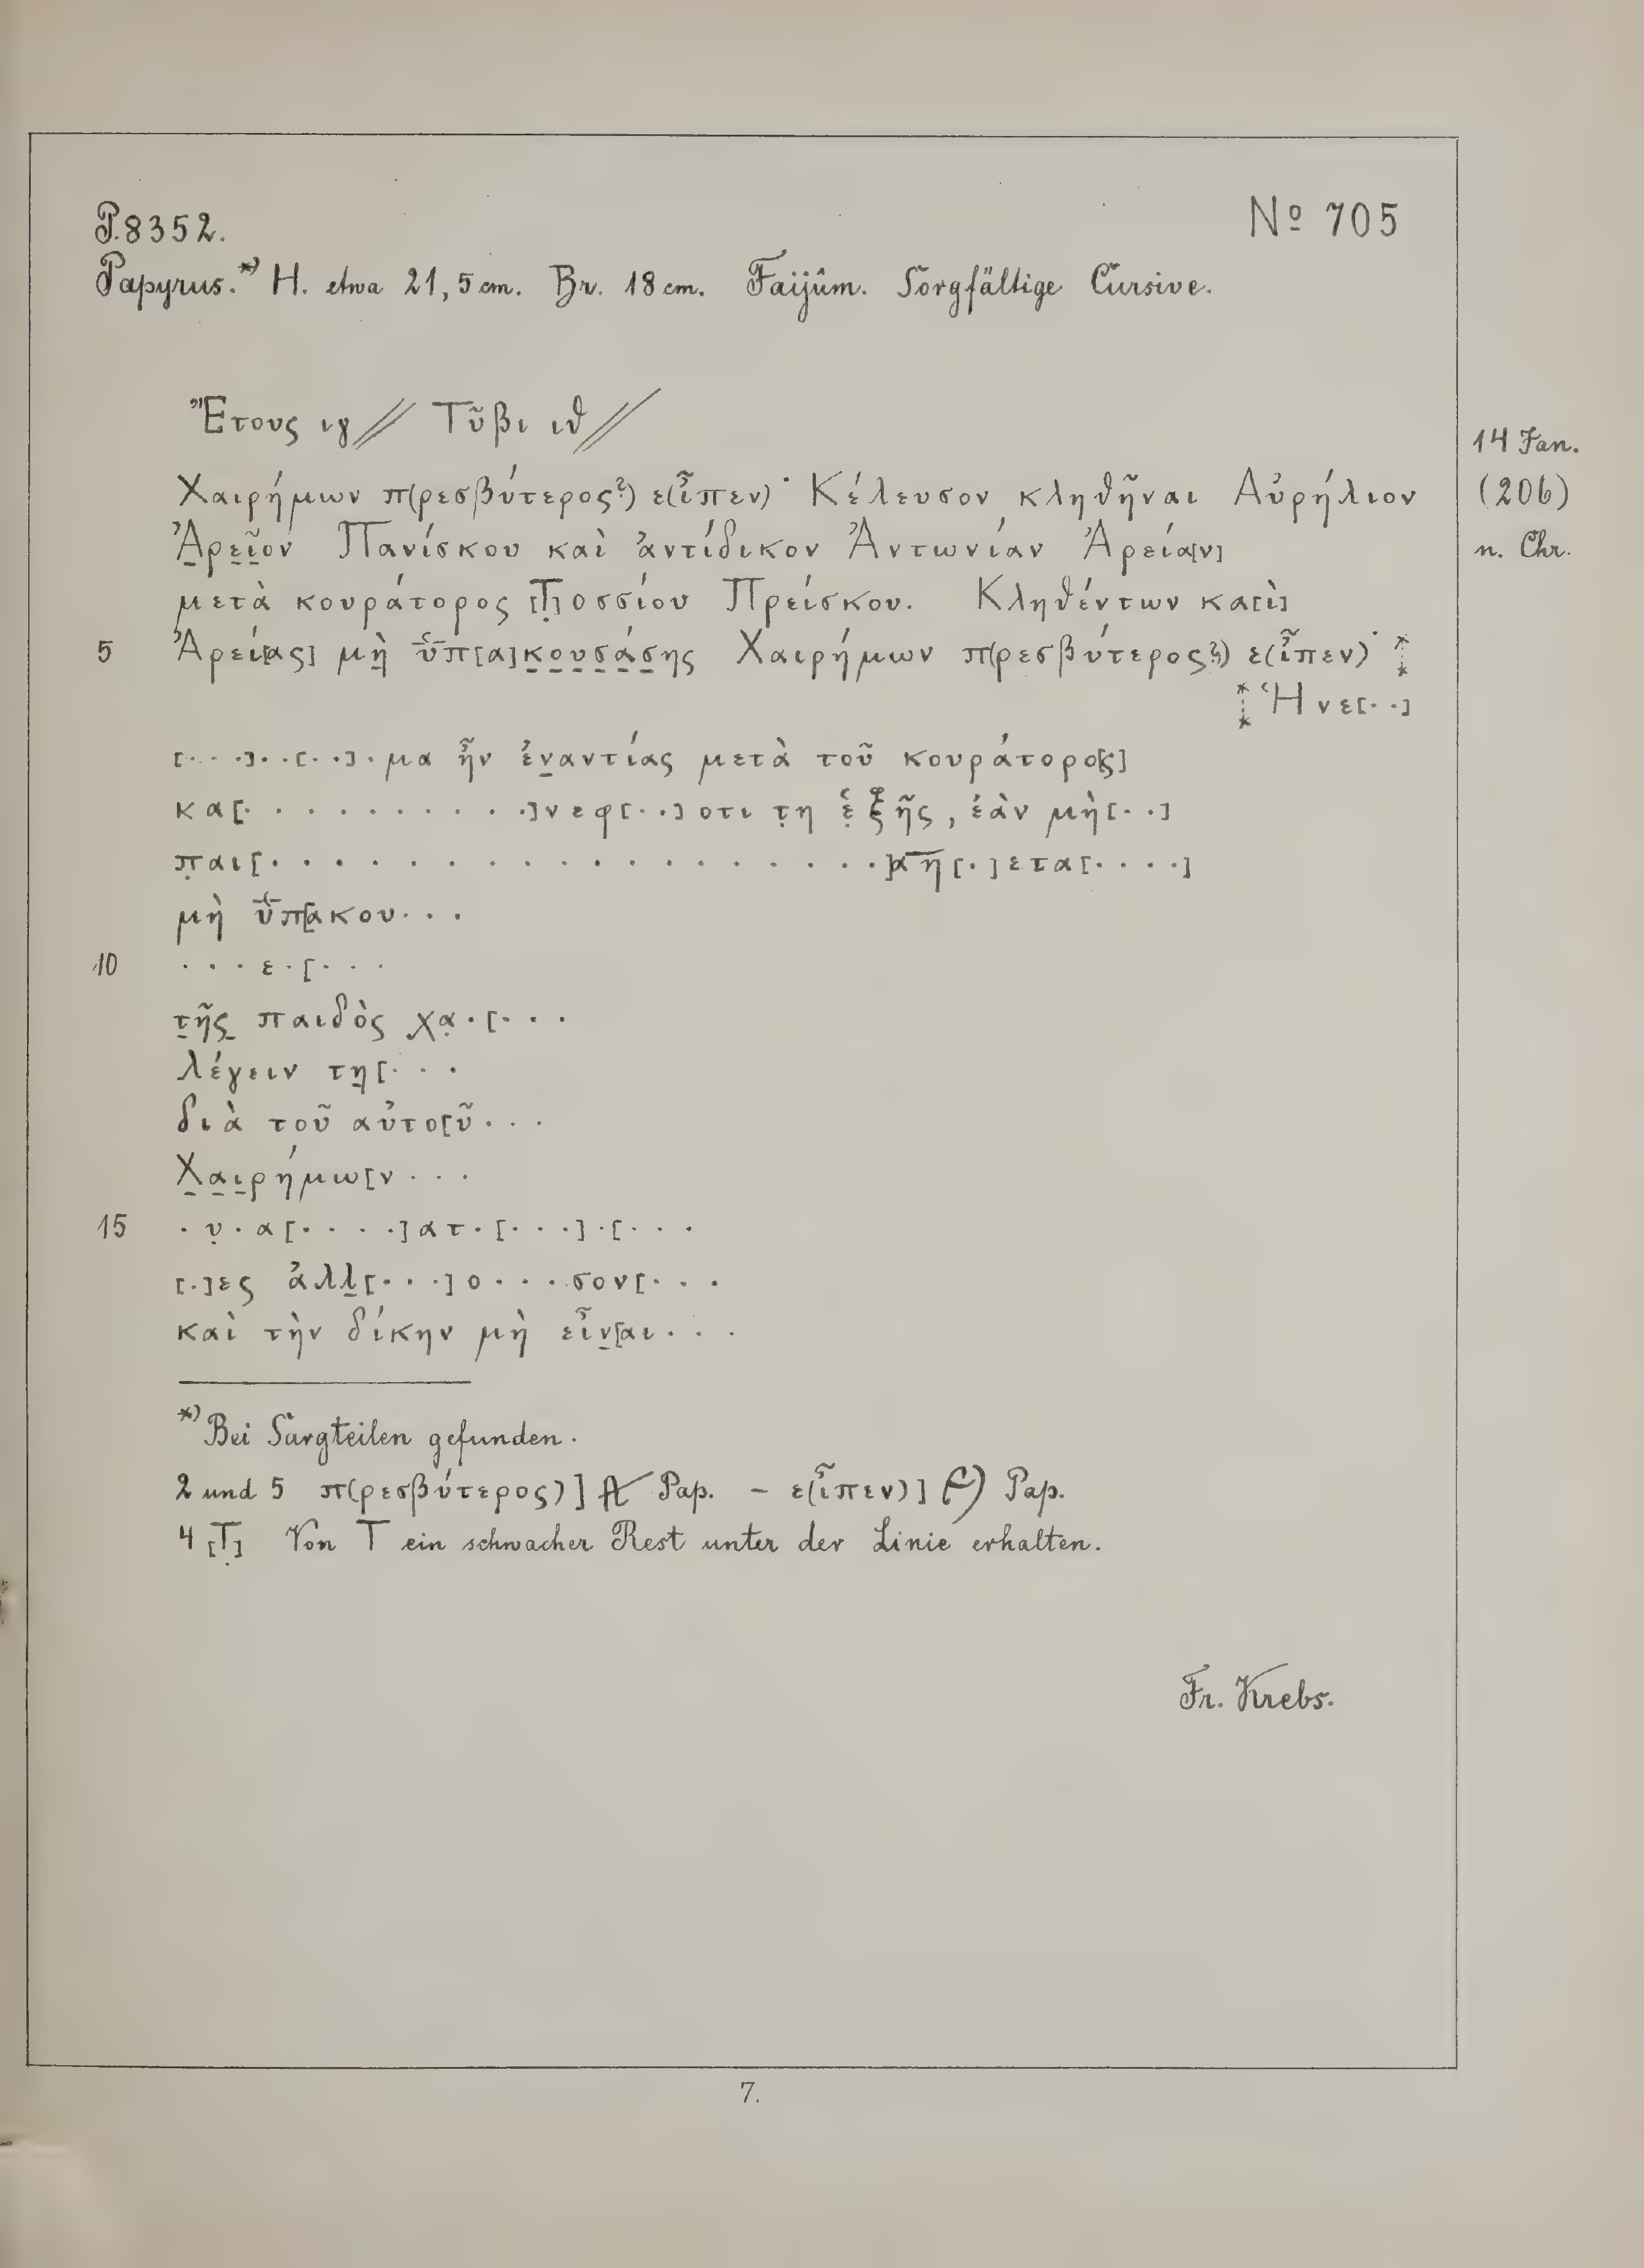 P. 8352. № 705
Papyrus.*) H. etwa 21,5 cm. Br. 18 cm. Faijûm. Sorgfältige Cursive.
Ἔτους ιγ// Τῦβι ιθ//
14 Jan.
Χαιρήμων π(ρεσβύτερος?) ε(ἶπεν)· Κέλευσον κληθῆναι Αὐρήλιον
(206)
Ἀ̣ρε̣ῖ̣ον Πανίσκου καὶ ἀντίδικον Ἀντωνίαν Ἀρεία[ν]
n. Chr.
μετὰ κουράτορος [Τ̣]οσσίου Πρείσκου. Κληθέντων κα[ὶ]
5 Ἀρεί[ας] μὴ̣ ὑπ[α]κ̣ο̣υ̣σ̣ά̣σ̣ης Χαιρήμων π(ρεσβύτερος?) ε(ἶπεν)·
Ἡ νε[··]
[····]··[···]·μα ἦν ἐν̣αντίας μετὰ τοῦ κουράτορο[ς]
κα[··········]νεφ[··]οτι τ̣η ἑ̣ξῆς, ἐὰν μὴ[··]
π̣αι[···················]α̅η̅[·]ετα[····]
μὴ ὑπ[ακου···
10 ···ε·[···
τ̣ῆς̣ παιδὸς χα̣·[···
λέγειν τη̣[···
διὰ τοῦ αὐτο[ῦ···
Χ̣α̣ι̣ρήμω[ν···
15 ·υ̣·α[····]ατ·[···]·[···
[·]ες ἀλλ̣[···]ο···σον[···
καὶ τὴν δίκην μὴ εἶν̣[αι···
*) Bei Sargteilen gefunden.
2 und 5 π(ρεσβύτερος)] Pap. – ε(ἶπεν)] Pap.
4 [Τ̣] Von Τ ein schwacher Rest unter der Linie erhalten.
Fr. Krebs.
7.